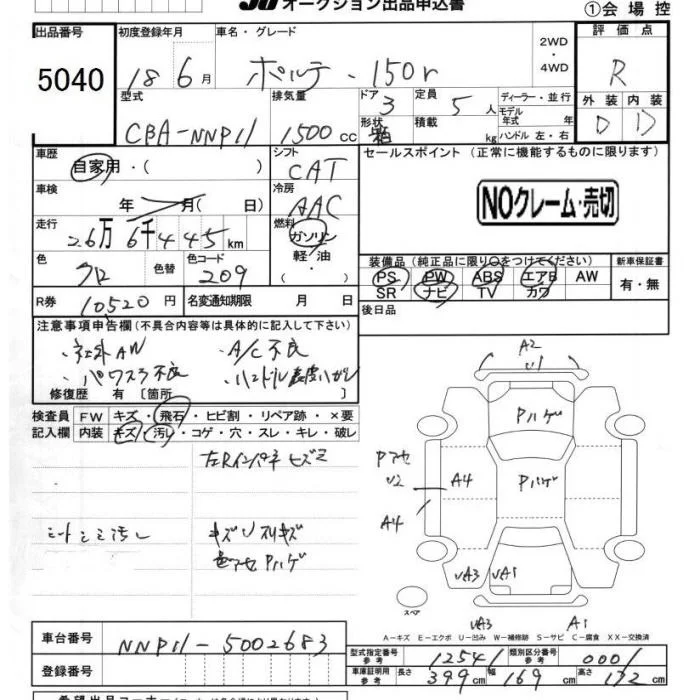 JU オークション出品申込書
①会場控
出品番号 5040
初度登録年月 18 6月
車名・グレード ポルテ・150r
2WD・4WD
評価点 R
型式 CBA-NNP11
排気量 1500cc
ドア 3
形状 箱
定員 5人
積載 kg
ディーラー・並行
モデル年式 年
ハンドル 左・右
外装 D
内装 D
車歴 自家用・( )
シフト CAT
セールスポイント (正常に機能するものに限ります)
車検 年 月( 日)
冷房 AAC
NOクレーム・売切
走行 26万6千445km
燃料 ガソリン 軽・油 ・( )
色 クロ
色替
色コード 209
装備品 (純正品に限り○をつけてください)
新車保証書
PS PW ABS エアB AW
有・無
SR ナビ TV カワ
R券 10520円
名変通知期限 月 日
後日品
注意事項申告欄 (不具合内容等は具体的に記入して下さい)
・社外AW ・A/C不良
・パワスラ不良 ・ハンドル表皮ハガレ
修復歴 有 〔箇所 〕
検査員 FW キズ・飛石・ヒビ割・リペア跡・×要
記入欄 内装 キズ・汚レ・コゲ・穴・スレ・キレ・破レ
左Rインパネ ヒズミ
シートシミ汚レ
キズUスリキズ
色アセPハゲ
A2
U1
Pハゲ
Pアセ
U2
A4
Pハゲ
A4
UA3
UA1
スペア
UA3
A1
A-キズ E-エクボ U-凹み W-補修跡 S-サビ C-腐食 XX-交換済
車台番号 NNP11-5002683
登録番号
型式指定番号 参考 12541
類別区分番号 参考 0001
車庫証明用 参考 長さ 399cm 幅 169cm 高さ 172cm